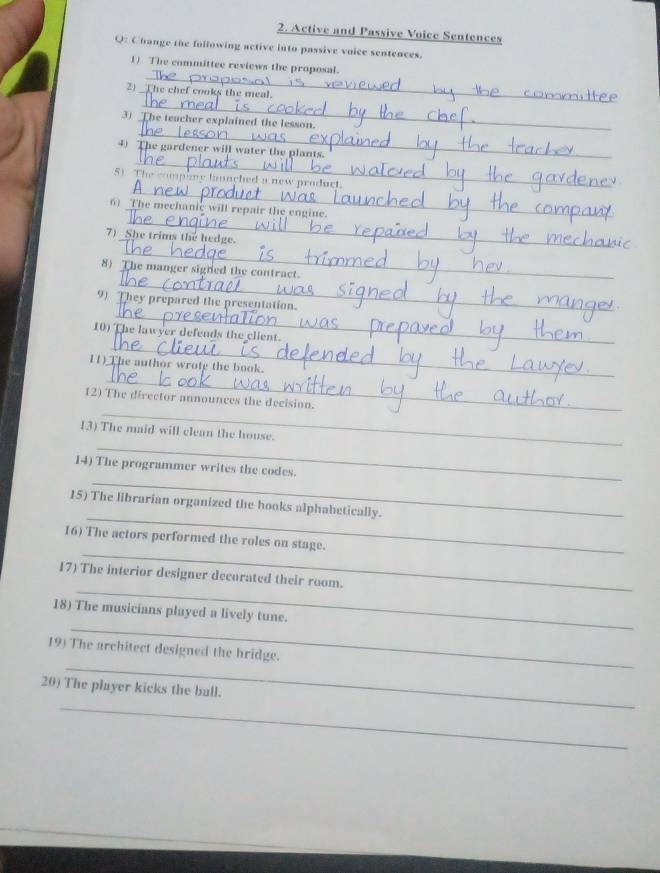 2. Active and Passive Voice Sentences
Q: Change the following active into passive voice sentences.
1) The committee reviews the proposal.
The proposal is reviewed by the committee
2) The chef cooks the meal.
The meal is cooked by the chef.
3) The teacher explained the lesson.
The lesson was explained by the teacher.
4) The gardener will water the plants.
The plants will be watered by the gardener.
5) The company launched a new product.
A new product was launched by the company.
6) The mechanic will repair the engine.
The engine will be repaired by the mechanic
7) She trims the hedge.
The hedge is trimmed by her.
8) The manger signed the contract.
The contract was signed by the manger.
9) They prepared the presentation.
The presentation was prepared by them.
10) The lawyer defends the client.
The client is defended by the Lawyer.
11) The author wrote the book.
The book was written by the author.
12) The director announces the decision.
13) The maid will clean the house.
14) The programmer writes the codes.
15) The librarian organized the books alphabetically.
16) The actors performed the roles on stage.
17) The interior designer decorated their room.
18) The musicians played a lively tune.
19) The architect designed the bridge.
20) The player kicks the ball.